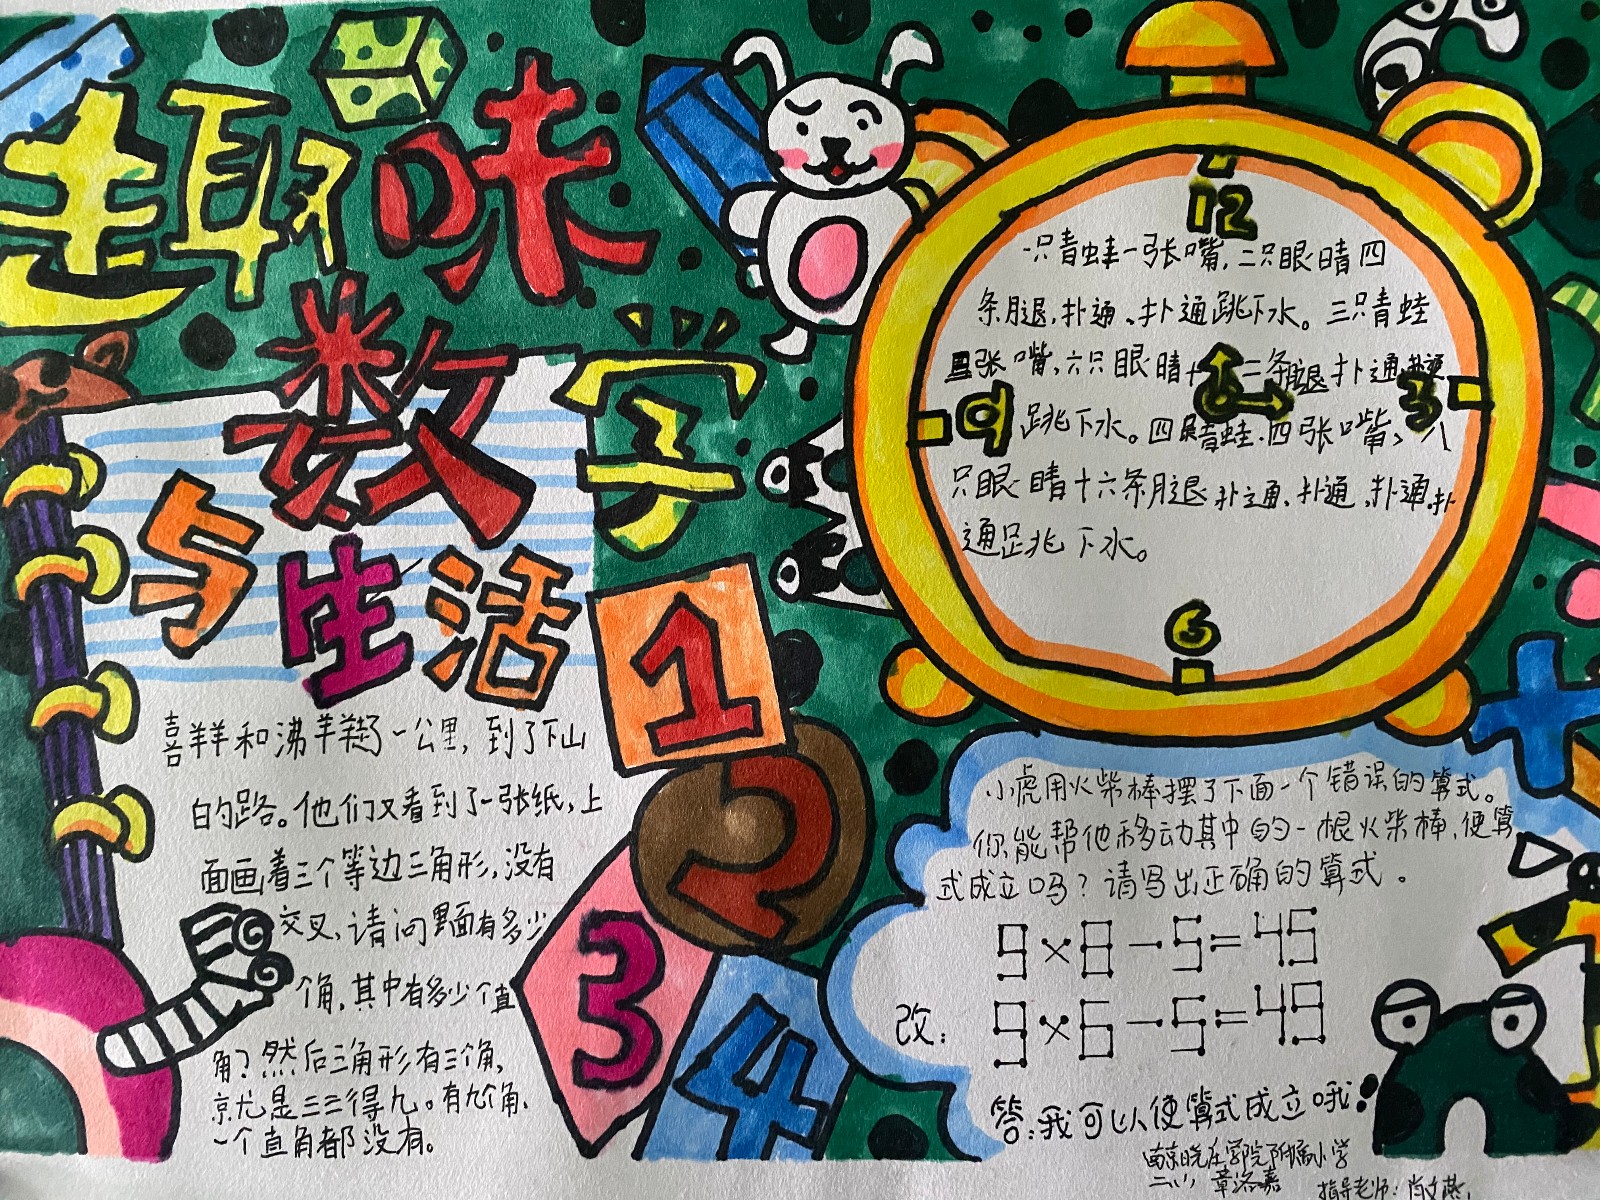 趣味
数字
与生活
12
一只青蛙一张嘴，二只眼睛四
条腿，扑通、扑通跳下水。三只青蛙
三张嘴，六只眼睛十二条腿扑通
9
3
跳下水。四只青蛙.四张嘴，八
只眼睛十六条腿扑通、扑通、扑通.扑
通跳下水。
6
1
2
3
4
喜羊羊和沸羊羊 一公里，到了下山
的路。他们又看到了一张纸，上
面画着三个等边三角形，没有
交叉，请问里面有多少
个角，其中有多少个直
角？然后三角形有三个角，
就是三三得九。有九个角、
一个直角都没有。
小虎用火柴棒摆了下面一个错误的算式。
你能帮他移动其中的一根火柴棒，使算
式成立吗？请写出正确的算式。
9×8-5=45
改：9×6-5=49
答：我可以使算式成立哦！
南京晓庄学院附属小学
章洛嘉
指导老师：